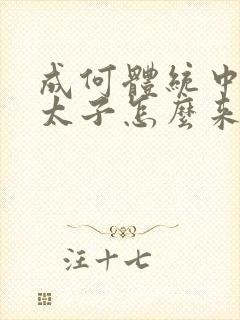 成何體統中
太子怎麼來
汪十七